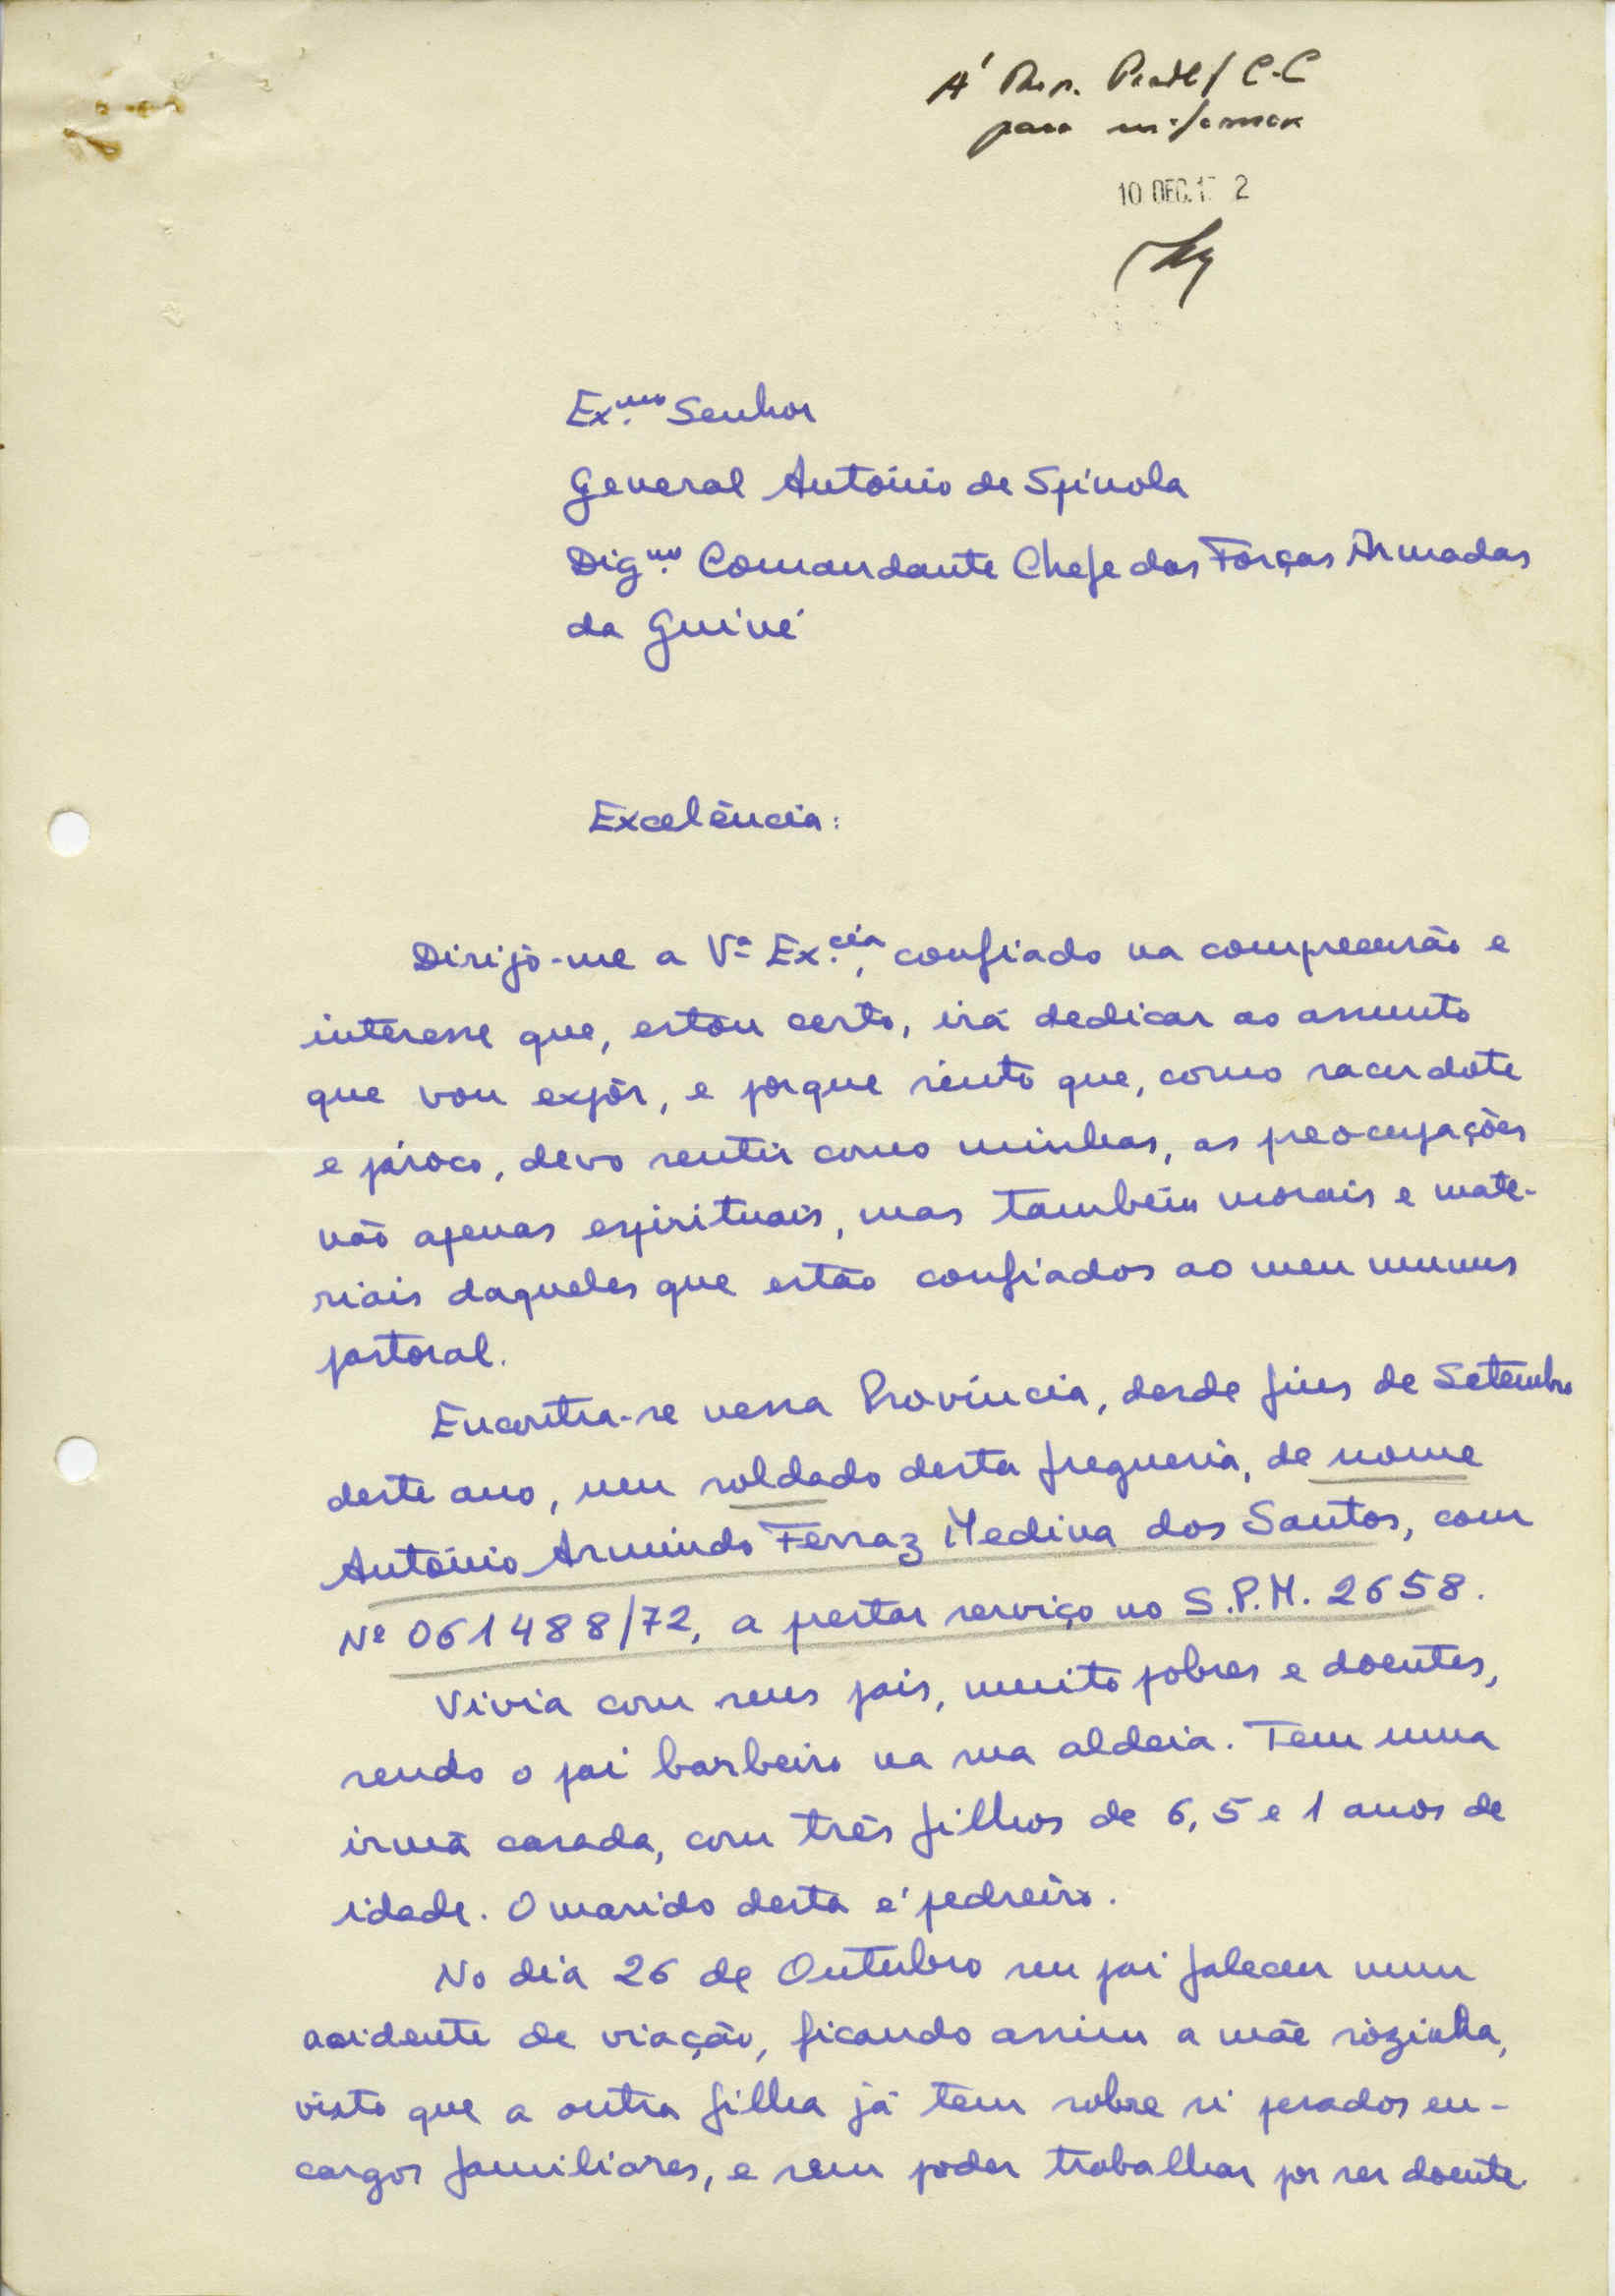 À Rep. / C-C
para informar
10 DEC. 1 2
Ex.mo Senhor
General António de Spínola
Dig.mo Comandante Chefe das Forças Armadas
da Guiné
Excelência:
Dirijo-me a Vª Ex.cia, confiado na compreensão e
interesse que, estou certo, irá dedicar ao assunto
que vou expôr, e porque sinto que, como sacerdote
e pároco, devo sentir como minhas, as preocupações
não apenas espirituais, mas também morais e mate-
riais daqueles que estão confiados ao meu munus
pastoral.
Encontra-se nessa Província, desde fins de Setembro
deste ano, um soldado desta freguesia, de nome
António Armindo Ferraz Medina dos Santos, com
Nº 061488/72, a prestar serviço no S.P.M. 2658.
Vivia com seus pais, muito pobres e doentes,
sendo o pai barbeiro na sua aldeia. Tem uma
irmã casada, com três filhos de 6, 5 e 1 anos de
idade. O marido desta é pedreiro.
No dia 26 de Outubro seu pai faleceu num
acidente de viação, ficando assim a mãe sòzinha,
visto que a outra filha já tem sobre si pesados en-
cargos familiares, e sem poder trabalhar por ser doente.